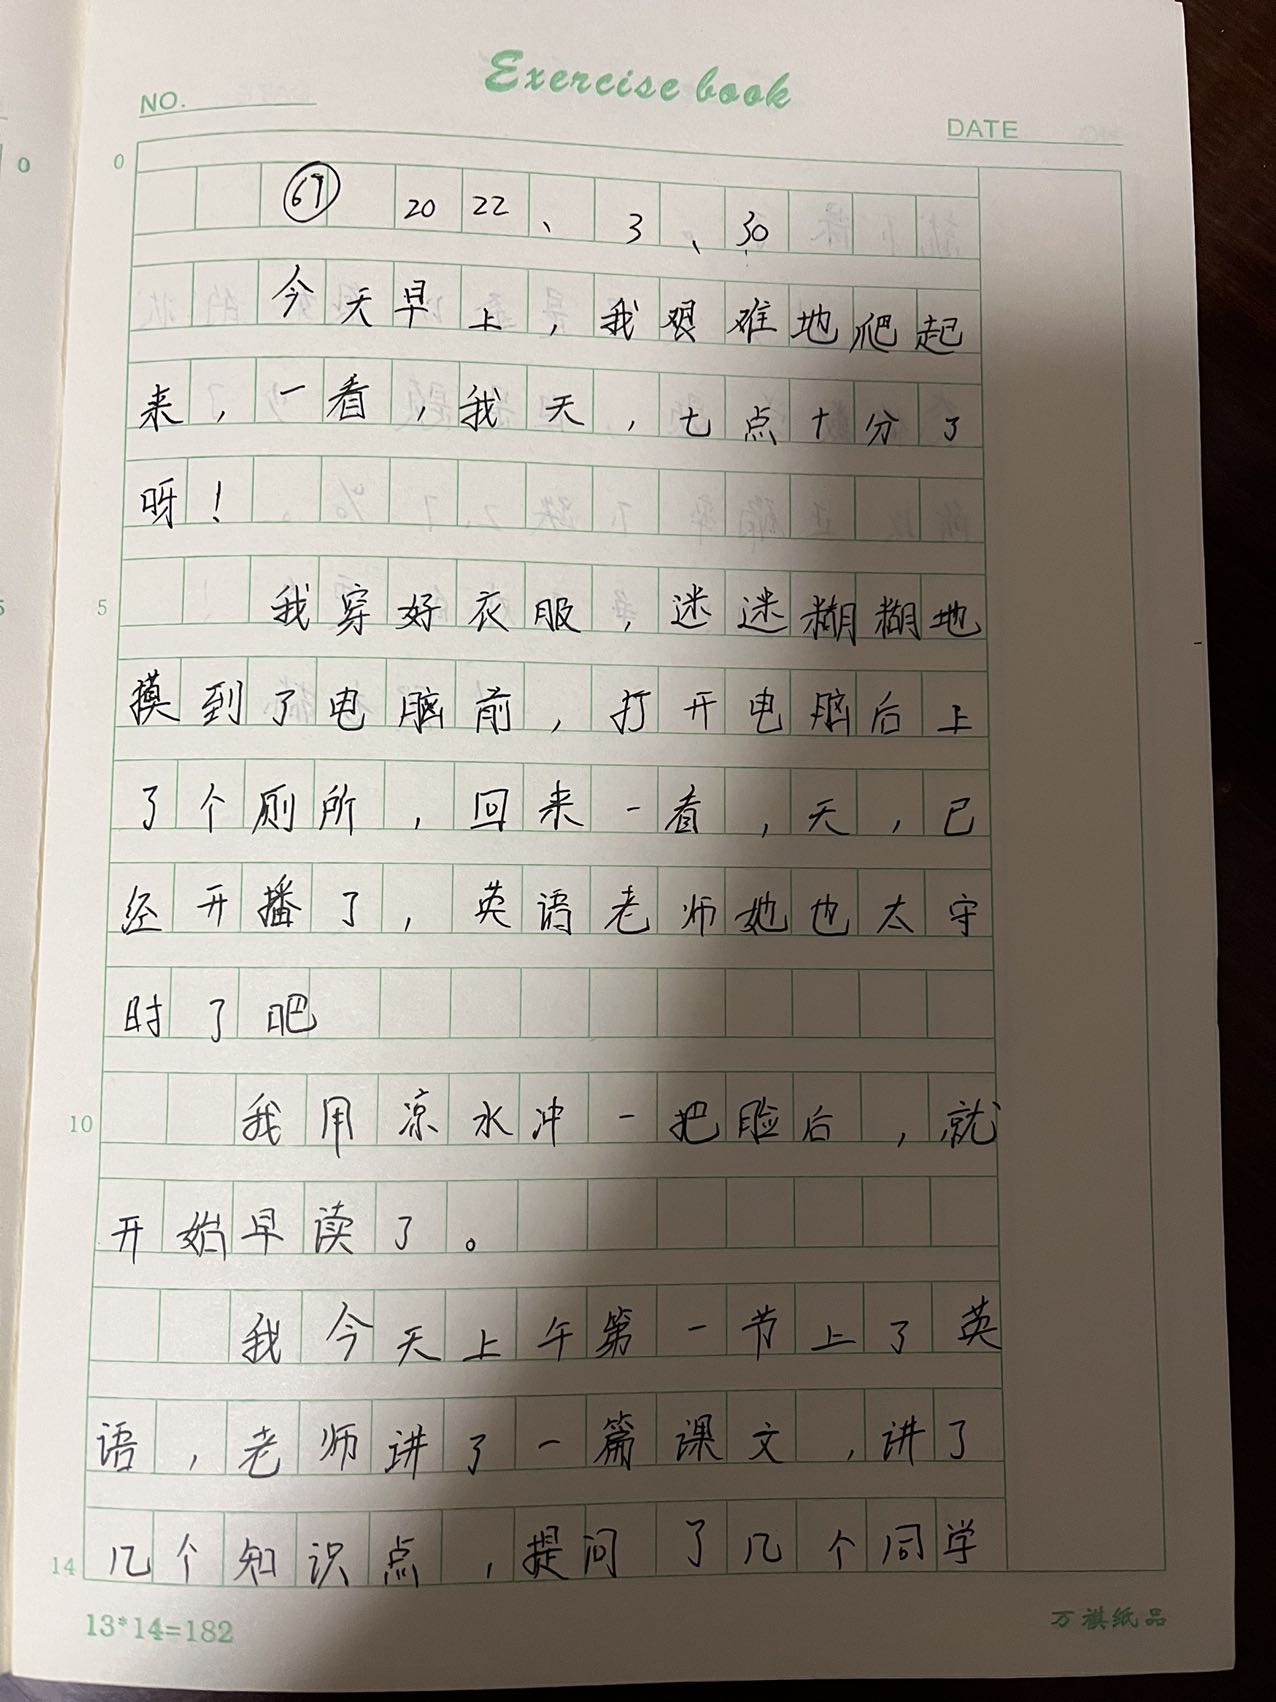 Exercise book
NO.
DATE
0
0
67 2022、3、30
今天早上，我艰难地爬起
来，一看，我天，七点十分了
呀！
5
5
我穿好衣服，迷迷糊糊地
摸到了电脑前，打开电脑后上
了个厕所，回来一看，天，已
经开播了，英语老师她也太守
时了吧
10
我用凉水冲一把脸后，就
开始早读了。
我今天上午第一节上了英
语，老师讲了一篇课文，讲了
14
几个知识点，提问了几个同学
13*14=182
万祺纸品